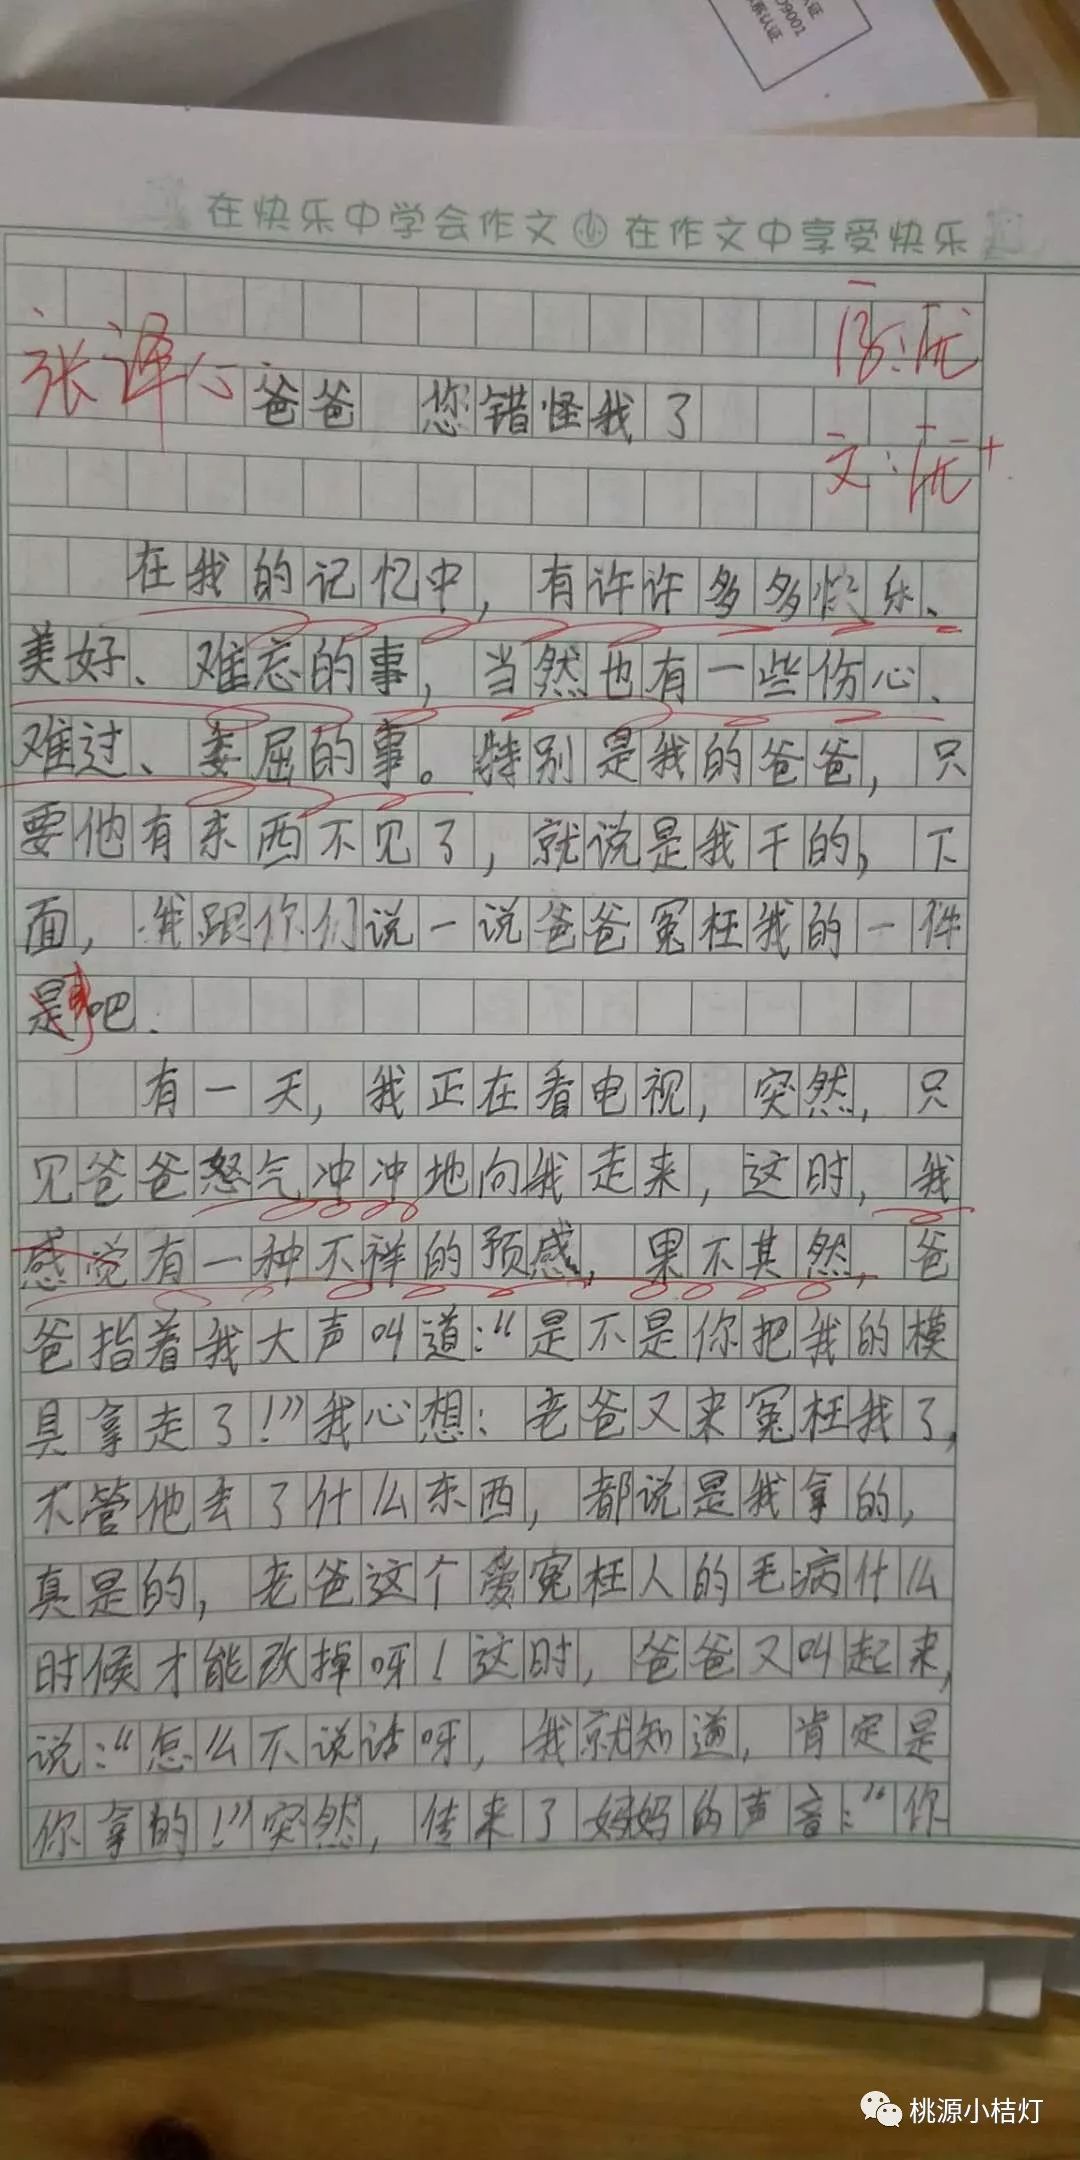 证
09001
系认证
在快乐中学会作文 在作文中享受快乐
张译心
爸爸 您错怪我了
优
文:优+
在我的记忆中,有许许多多快乐、
美好、难忘的事,当然也有一些伤心、
难过、委屈的事。特别是我的爸爸,只
要他有东西不见了,就说是我干的,下
面,我跟你们说一说爸爸冤枉我的一件
事吧.
有一天,我正在看电视,突然,只
见爸爸怒气冲冲地向我走来,这时,我
感觉有一种不祥的预感,果不其然,爸
爸指着我大声叫道:“是不是你把我的模
具拿走了!”我心想:老爸又来冤枉我了,
不管他丢了什么东西,都说是我拿的,
真是的,老爸这个爱冤枉人的毛病什么
时候才能改掉呀!这时,爸爸又叫起来,
说:“怎么不说话呀,我就知道,肯定是
你拿的!”突然,传来了妈妈的声音:“你
桃源小桔灯